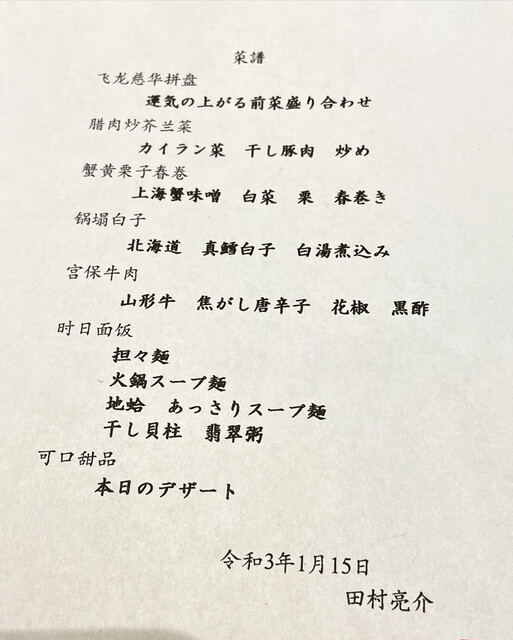 菜譜
飞龙慈华拼盘
運気の上がる前菜盛り合わせ
腊肉炒芥兰菜
カイラン菜　干し豚肉　炒め
蟹黄栗子春巻
上海蟹味噌　白菜　栗　春巻き
锅塌白子
北海道　真鱈白子　白湯煮込み
宮保牛肉
山形牛　焦がし唐辛子　花椒　黒酢
时日面饭
担々麺
火鍋スープ麺
地蛤　あっさりスープ麺
干し貝柱　翡翠粥
可口甜品
本日のデザート
令和3年1月15日
田村亮介